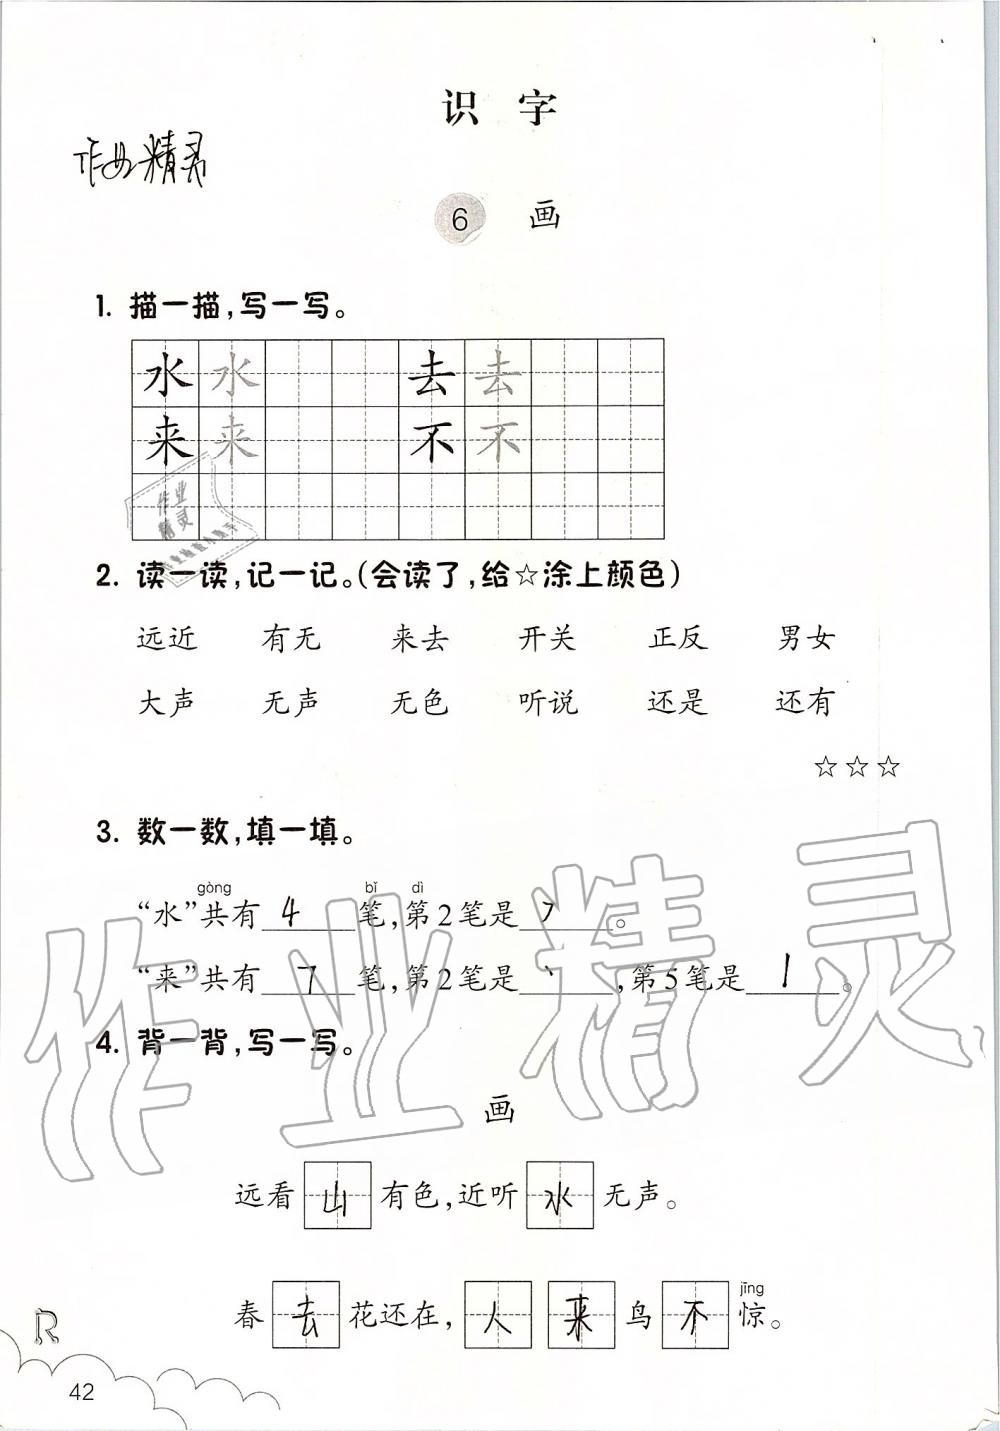 识 字
作业精灵
6 画
1. 描一描,写一写。
水 水 去 去
来 来 不 不
作业
精灵
2. 读一读,记一记。(会读了,给☆涂上颜色)
远近 有无 来去 开关 正反 男女
大声 无声 无色 听说 还是 还有
☆☆☆
3. 数一数,填一填。
gòng bǐ dì
“水”共有 4 笔,第2笔是 ㇇ 。
“来”共有 7 笔,第2笔是 丶 ,第5笔是 丨 。
4. 背一背,写一写。
画
远看 山 有色,近听 水 无声。
jīng
春 去 花还在, 人 来 鸟 不 惊。
R
42
作业精灵